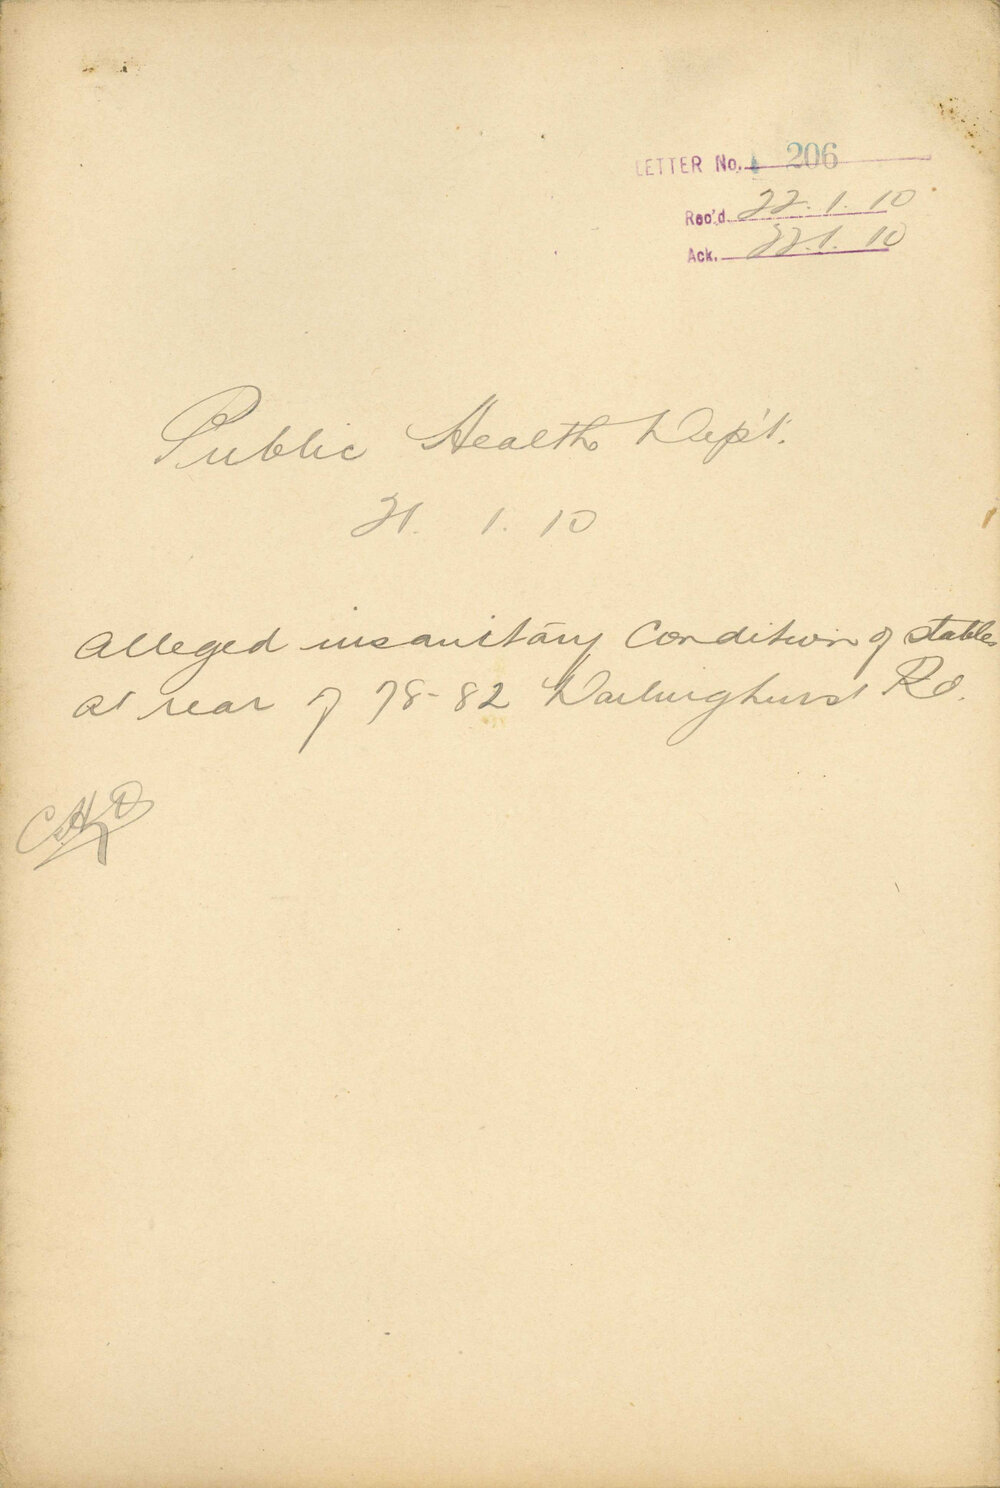 LETTER No. 206
Rec'd. 22.1.10
Ack. 22.1.10
Public Health Dep't.
21. 1. 10
Alleged insanitary condition of stables
at rear of 78-82 Darlinghurst Rd.